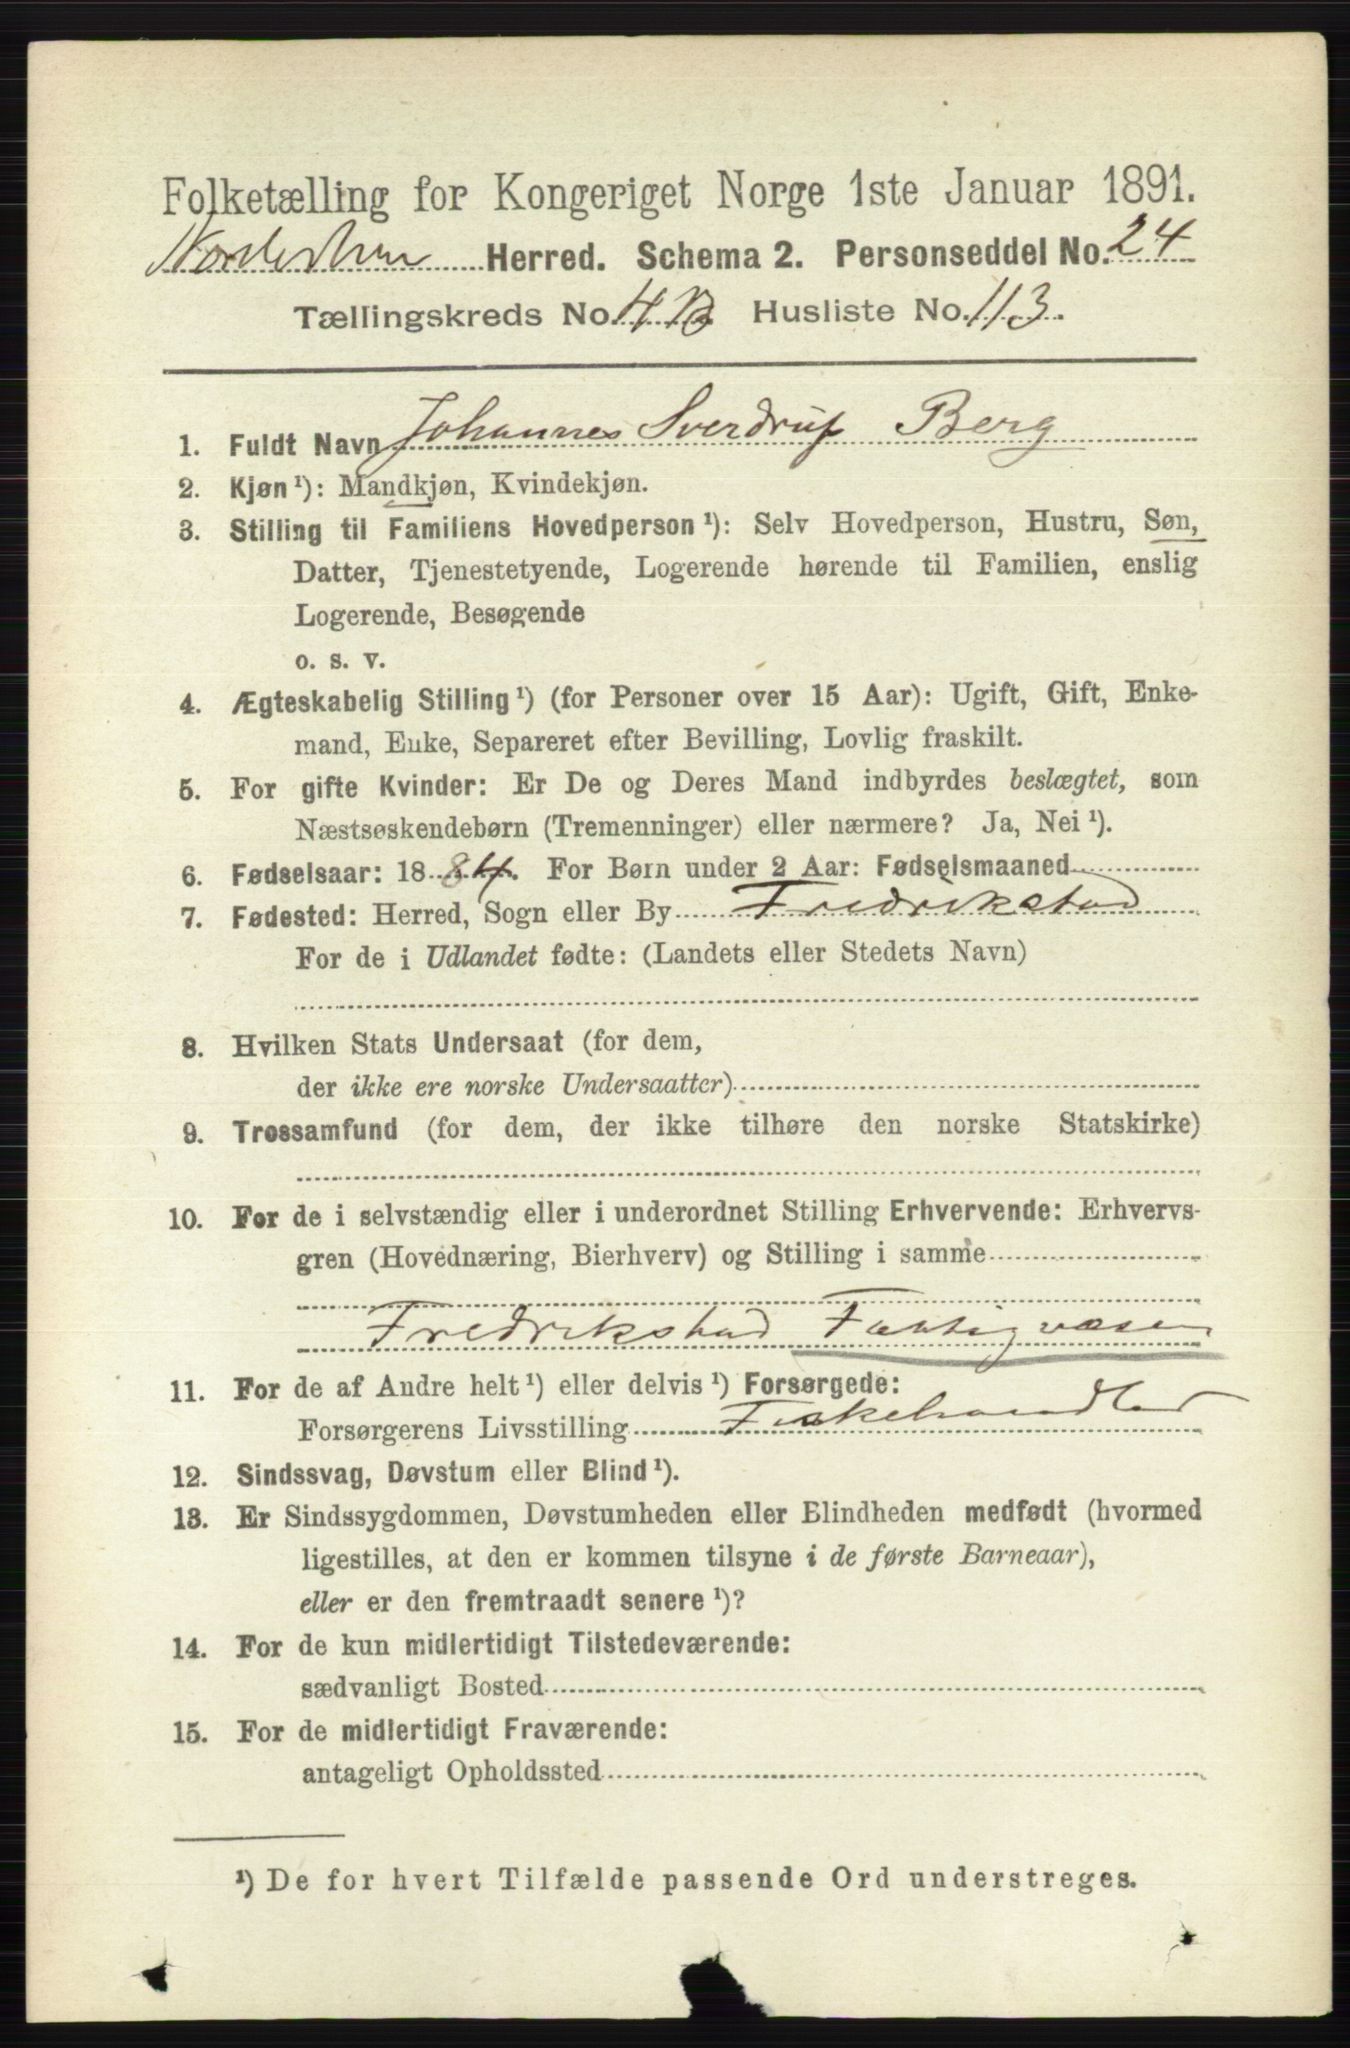 Folketælling for Kongeriget Norge 1ste Januar 1891.
Herred. Schema 2. Personseddel No. 24
Tællingskreds No. 4B Husliste No. 113.
1. Fuldt Navn Johannes Sverdrup Berg
2. Kjøn ¹): Mandkjøn, Kvindekjøn.
3. Stilling til Familiens Hovedperson ¹): Selv Hovedperson, Hustru, Søn,
Datter, Tjenestetyende, Logerende hørende til Familien, enslig
Logerende, Besøgende
o. s. v.
4. Ægteskabelig Stilling ¹) (for Personer over 15 Aar): Ugift, Gift, Enke-
mand, Enke, Separeret efter Bevilling, Lovlig fraskilt.
5. For gifte Kvinder: Er De og Deres Mand indbyrdes beslægtet, som
Næstsøskendebørn (Tremenninger) eller nærmere? Ja, Nei ¹).
6. Fødselsaar: 1884. For Børn under 2 Aar: Fødselsmaaned
7. Fødested: Herred, Sogn eller By Fredrikstad
For de i Udlandet fødte: (Landets eller Stedets Navn)
8. Hvilken Stats Undersaat (for dem,
der ikke ere norske Undersaatter)
9. Trossamfund (for dem, der ikke tilhøre den norske Statskirke)
10. For de i selvstændig eller i underordnet Stilling Erhvervende: Erhvervs-
gren (Hovednæring, Bierhverv) og Stilling i samme
Fredrikstad Fattigvæsen
11. For de af Andre helt ¹) eller delvis ¹) Forsørgede:
Forsørgerens Livsstilling Fiskehandler
12. Sindssvag, Døvstum eller Blind ¹).
13. Er Sindssygdommen, Døvstumheden eller Blindheden medfødt (hvormed
ligestilles, at den er kommen tilsyne i de første Barneaar),
eller er den fremtraadt senere ¹)?
14. For de kun midlertidigt Tilstedeværende:
sædvanligt Bosted
15. For de midlertidigt Fraværende:
antageligt Opholdssted
¹) De for hvert Tilfælde passende Ord understreges.